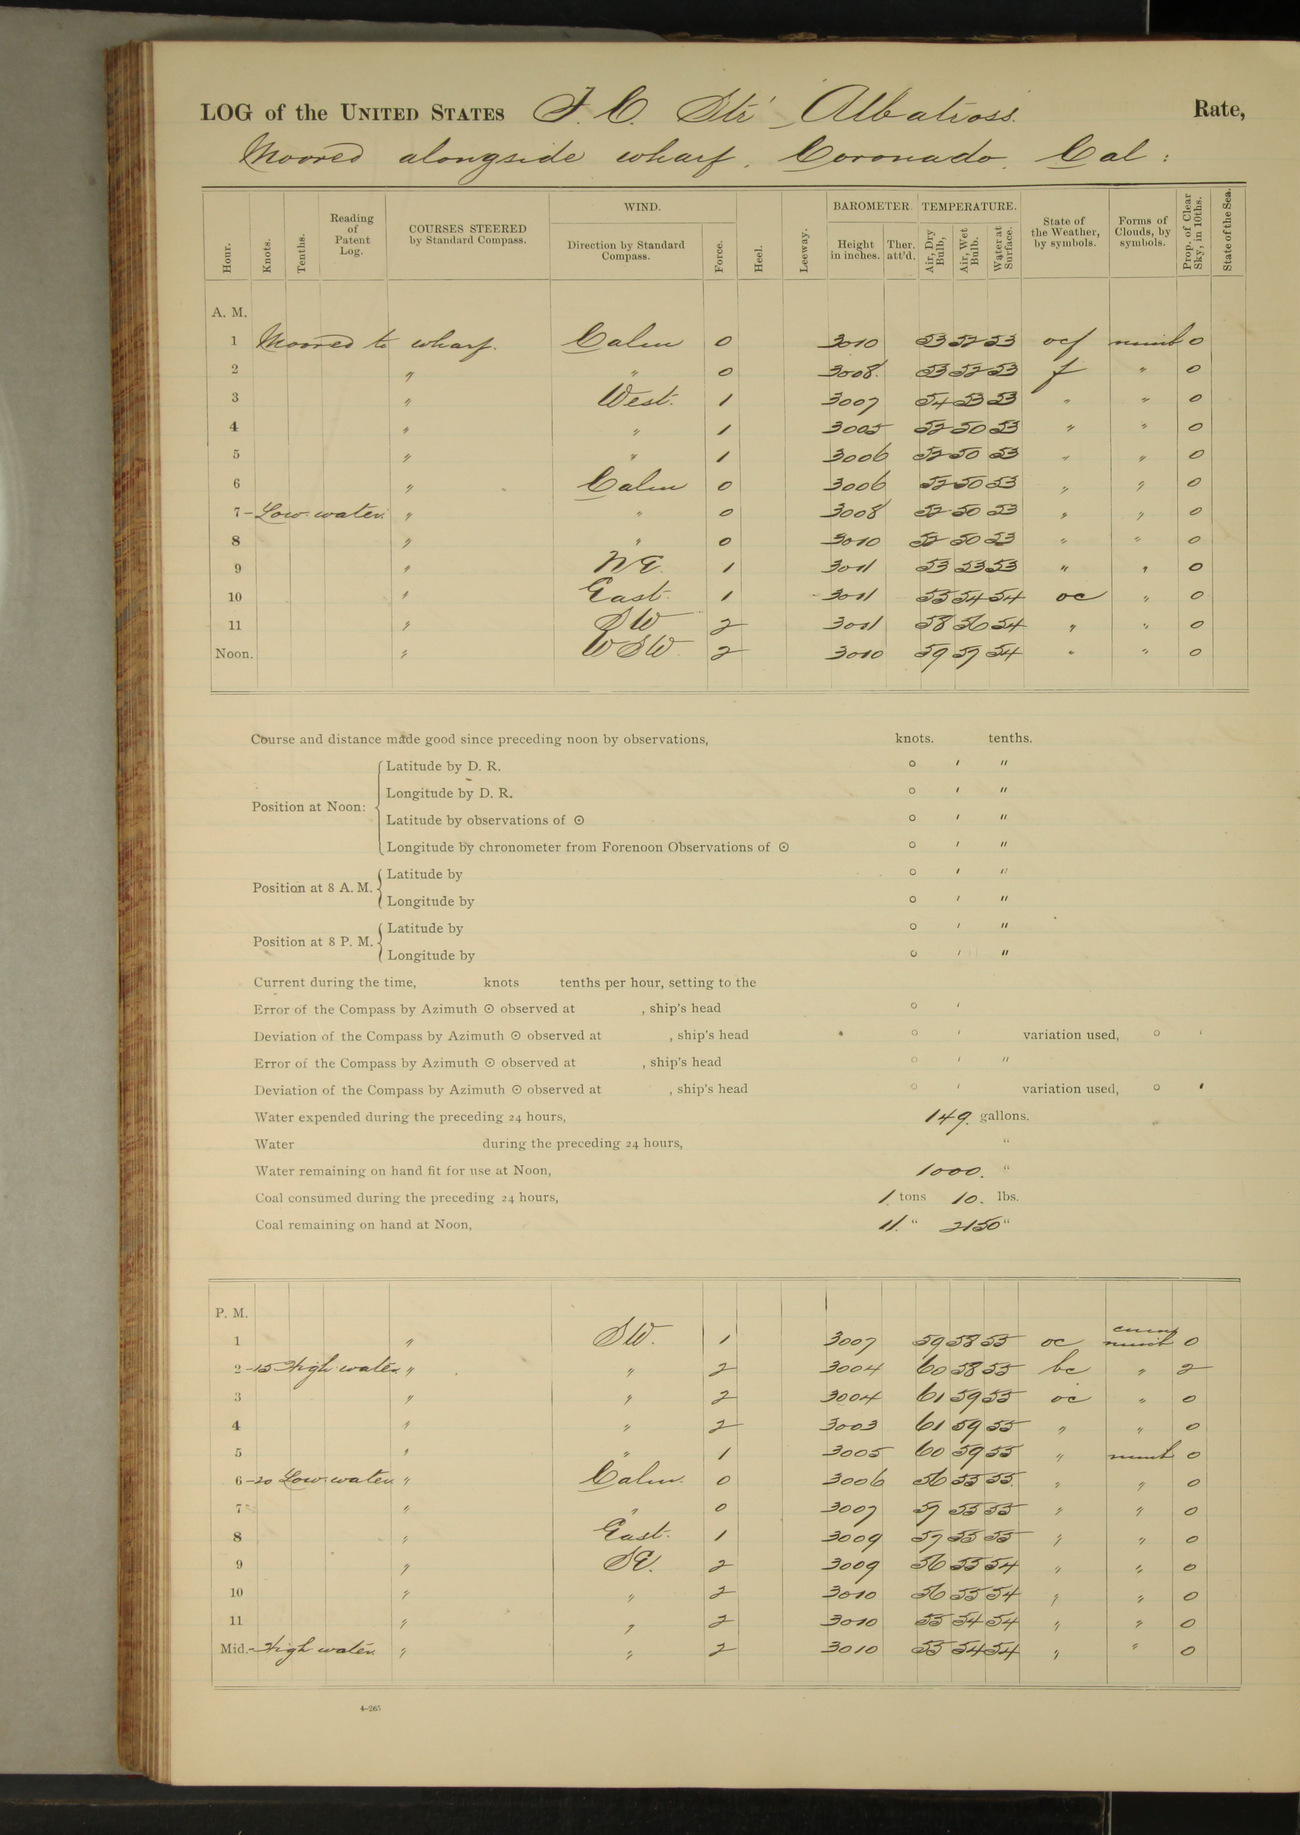 LOG of the UNITED STATES F. C. Str Albatross. Rate,
Moored alongside wharf, Coronado, Cal:
Hour. Knots. Tenths. Reading of Patent Log. COURSES STEERED by Standard Compass. WIND. Direction by Standard Compass. Force. Heel. Leeway. BAROMETER. Height in inches. Ther. att'd. TEMPERATURE. Air, Dry Bulb, Air, Wet Bulb. Water at Surface. State of the Weather, by symbols. Forms of Clouds, by symbols. Prop. of Clear Sky, in 10ths. State of the Sea.
A. M.
1 Moored to wharf. Calm 0 3010 53 52 53 ocf nimb 0
2 " " 0 3008 53 52 53 f " 0
3 " West. 1 3007 54 53 53 " " 0
4 " " 1 3005 52 50 53 " " 0
5 " " 1 3006 52 50 53 " " 0
6 " Calm 0 3006 52 50 53 " " 0
7 - Low water. " " 0 3008 52 50 53 " " 0
8 " " 0 3010 52 50 53 " " 0
9 " NE. 1 3011 53 53 53 " " 0
10 " East. 1 3011 55 54 54 oc " 0
11 " SW 2 3011 58 56 54 " " 0
Noon. " WSW 2 3010 59 57 54 " " 0
Course and distance made good since preceding noon by observations, knots. tenths.
Position at Noon: Latitude by D. R. ° ′ ″
Longitude by D. R. ° ′ ″
Latitude by observations of ⊙ ° ′ ″
Longitude by chronometer from Forenoon Observations of ⊙ ° ′ ″
Position at 8 A. M. Latitude by ° ′ ″
Longitude by ° ′ ″
Position at 8 P. M. Latitude by ° ′ ″
Longitude by ° ′ ″
Current during the time, knots tenths per hour, setting to the
Error of the Compass by Azimuth ⊙ observed at , ship's head ° ′
Deviation of the Compass by Azimuth ⊙ observed at , ship's head ° ′ variation used, ° ′
Error of the Compass by Azimuth ⊙ observed at , ship's head ° ′ ″
Deviation of the Compass by Azimuth ⊙ observed at , ship's head ° ′ variation used, ° ′
Water expended during the preceding 24 hours, 149. gallons.
Water during the preceding 24 hours, "
Water remaining on hand fit for use at Noon, 1000. "
Coal consumed during the preceding 24 hours, 1 tons 10. lbs.
Coal remaining on hand at Noon, 11. " 2150 "
P. M.
1 " SW. 1 3007 59 58 55 oc cum nimb 0
2 - 15 High water. " " 2 3004 60 58 55 bc " 2
3 " " 2 3004 61 59 55 oc " 0
4 " " 2 3003 61 59 55 " " 0
5 " " 1 3005 60 59 55 " nimb 0
6 - 20 Low water. " Calm. 0 3006 56 55 55. " " 0
7 " " 0 3007 57 55 55 " " 0
8 " East. 1 3009 57 55 55 " " 0
9 " SE. 2 3009 56 55 54 " " 0
10 " " 2 3010 56 55 54 " " 0
11 " " 2 3010 55 54 54 " " 0
Mid. - High water. " " 2 3010 55 54 54 " " 0
4-265